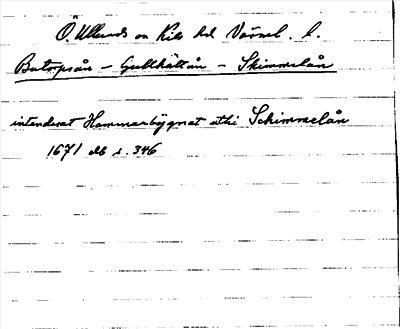 Ö. Ullerud sn Kils hd Värml. l.
Butorpsån – Gullhättån – Skimmelån
intenderat Hammarbygnat uthi Schimmelån
1671 db s. 346